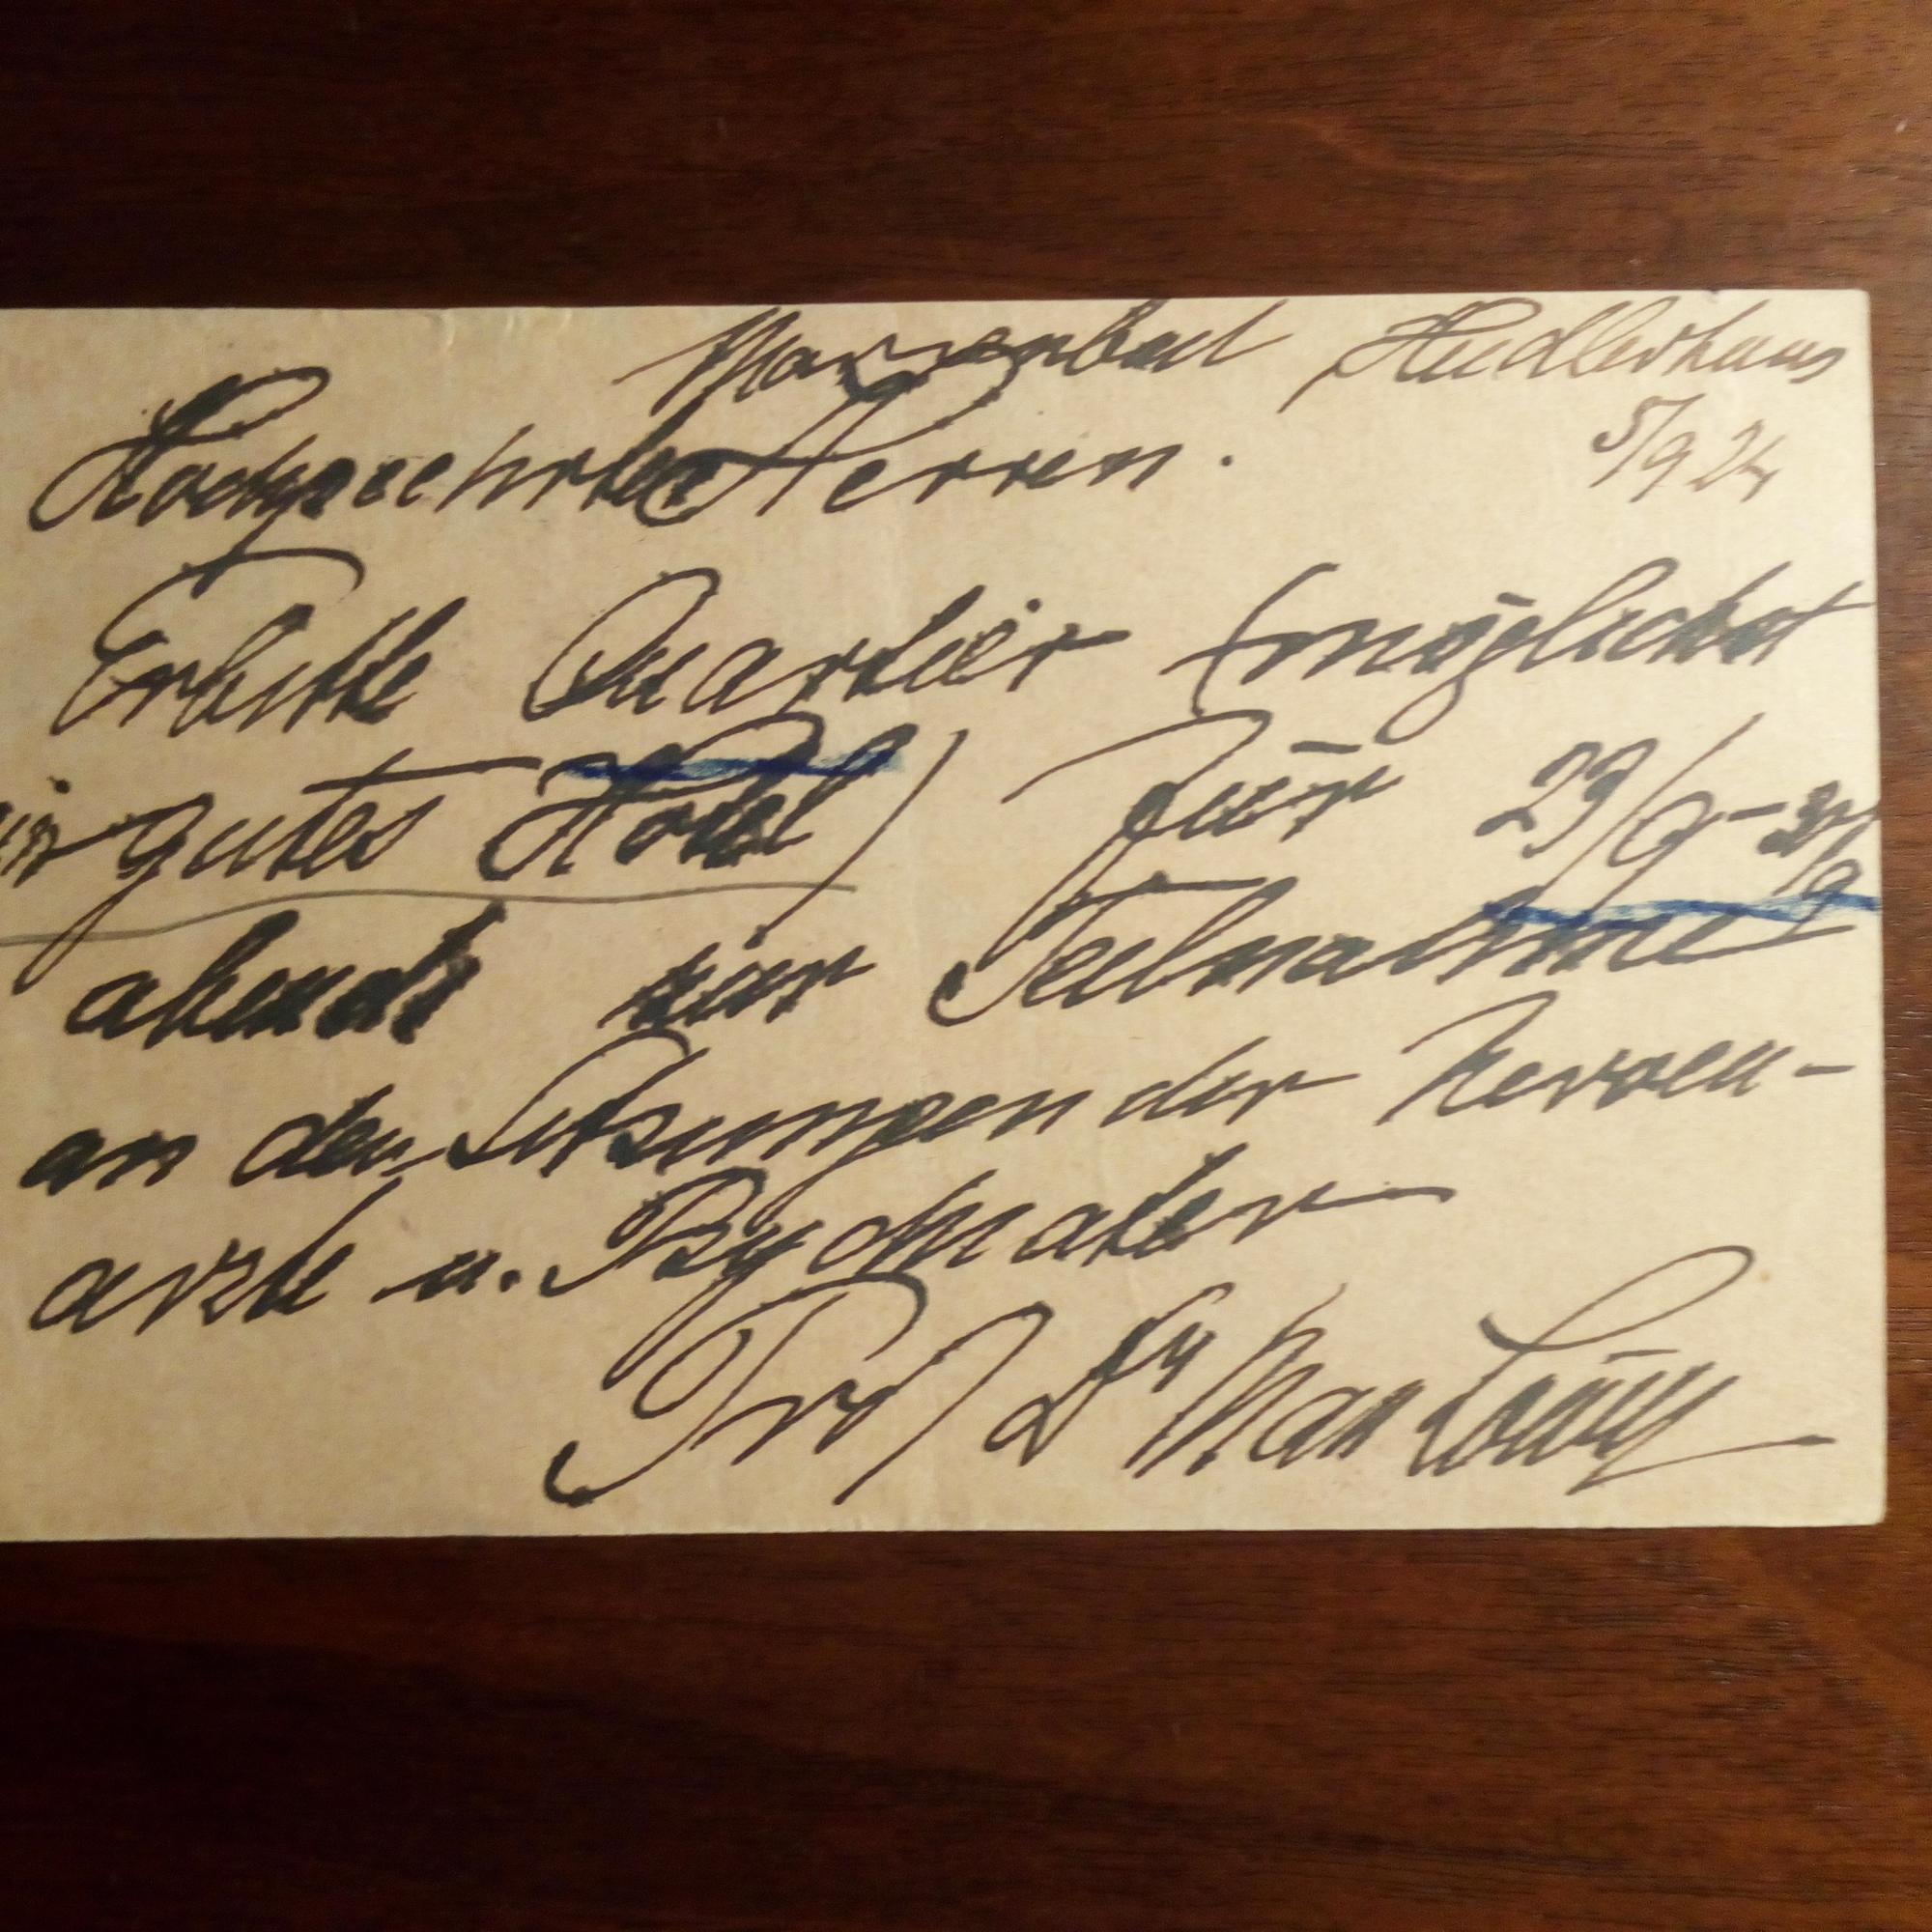 Marienbad Hudlerhaus
5/9 24
Hochgeehrte Herren.
Erbitte Quartier (möglichst
gutes Hotel) für 29/9 -
abends zur Teilnahme
an den Sitzungen der Nerven-
ärzte u. Psychiater
Prof Dr Max Löwy